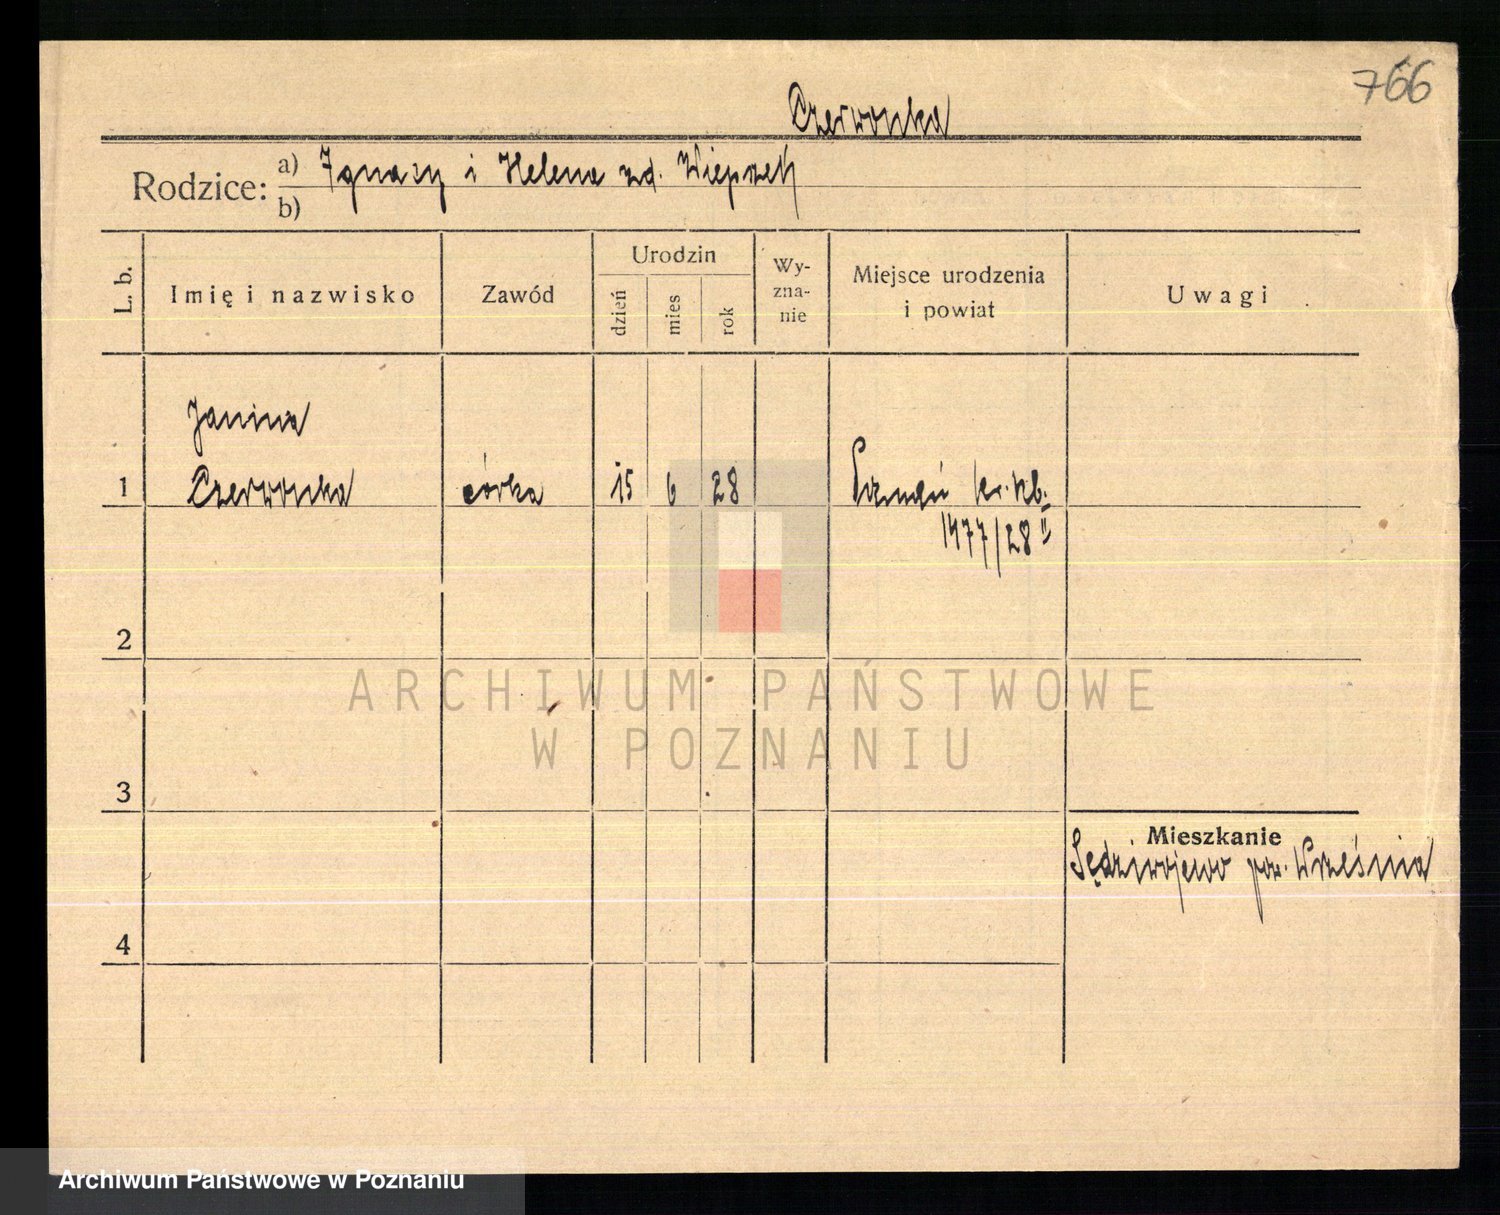 766
Czerwonka
Rodzice: a) Ignacy i Helena zd. Wieprzek
b)
L. b.
Imię i nazwisko
Zawód
Urodzin
dzień
mies
rok
Wy-
zna-
nie
Miejsce urodzenia
i powiat
Uwagi
Janina
1 Czerwonka córka 15 6 28 Poznań
1477/28 II
2
3
4
Mieszkanie
Sędziwojewo pow. Września
ARCHIWUM PAŃSTWOWE
W POZNANIU
Archiwum Państwowe w Poznaniu